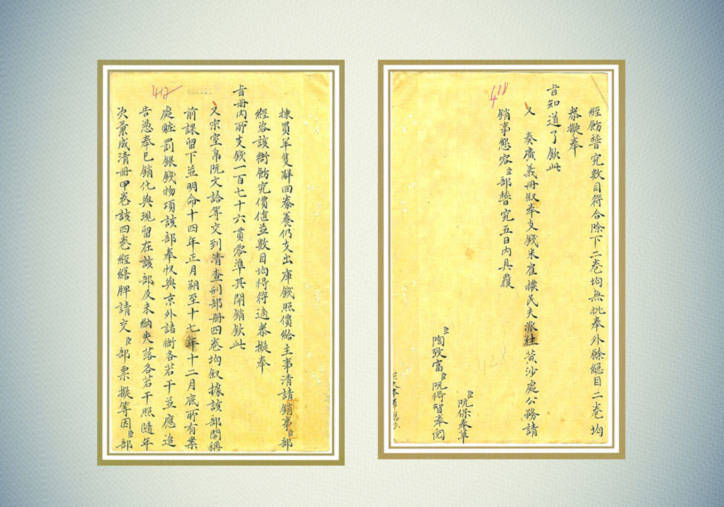 417
揀員羊隻辭回豢養仍支出庫錢照價給主事清請銷事臣部
經咨該衙飭究價值並數目均得符適恭擬奉
旨冊內所支錢一百七十六貫零準其開銷欽此
又宗室帛阮文詥等交到清查刑部冊四卷均叙據該部開稱
前課留下並明命十四年正月朔至十七年十二月底所有案
處贓罰銀錢物項該部奉收與京外諸衙各若干並應追
告悉奉已銷化與現留在該部及未納失落各若干照隨年
次彙成清冊甲卷該四卷經繕牌請交臣部票擬等因臣部
418
經飭督究數目符合除下二卷均無批奉外餘總目二卷均
恭擬奉
旨知道了欽此
又奏廣義冊叙奉支錢米雇樸民夫派往黃沙處公務請
銷事懇咨臣部督究五日內具覆
臣阮保奉草
臣陶致富臣阮得智奉閱